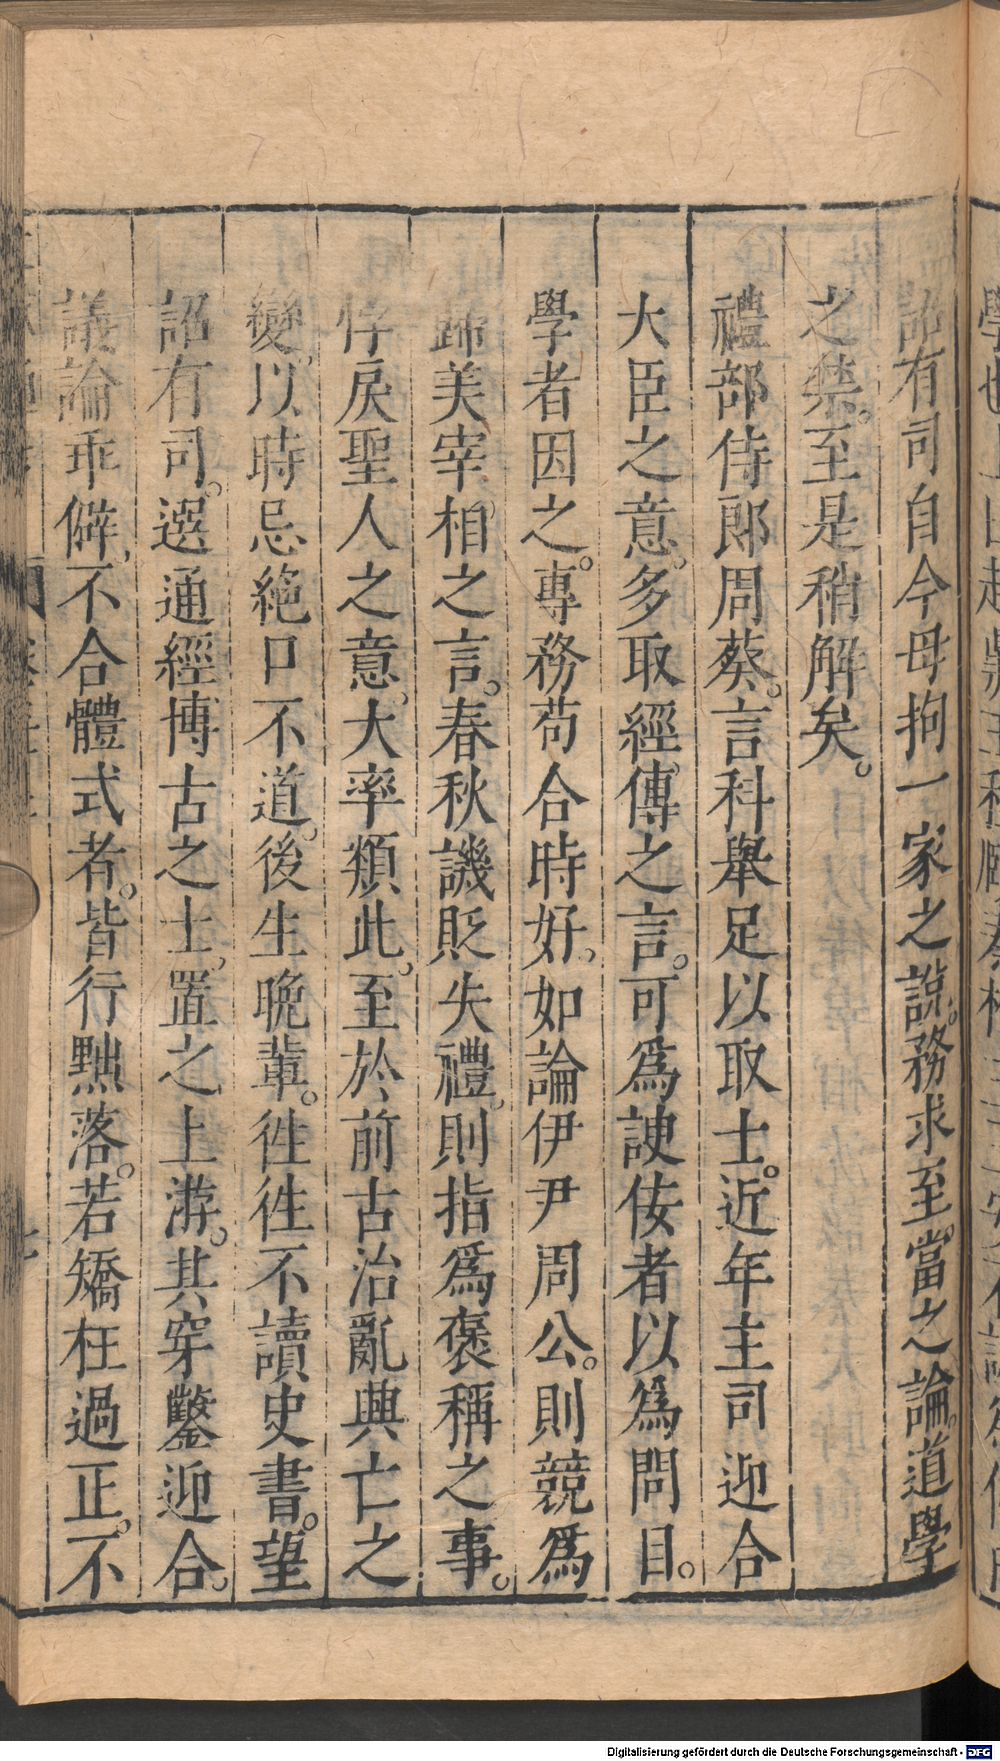 詔有司自今毋拘一家之說。務求至當之論。道學
之禁。至是稍解矣。
禮部侍郎周葵。言科舉足以取士。近年主司迎合
大臣之意。多取經傳之言。可爲諛佞者以爲問目。
學者因之。專務苟合時好。如論伊尹周公。則競爲
歸美宰相之言。春秋譏貶失禮。則指爲褒稱之事。
悖戾聖人之意。大率類此。至於前古治亂興亡之
變。以時忌絕口不道。後生晚輩。徃徃不讀史書。望
詔有司。選通經博古之士。置之上游。其穿鑿迎合。
議論乖僻。不合體式者。皆行黜落。若矯枉過正。不
Digitalisierung gefördert durch die Deutsche Forschungsgemeinschaft - DFG